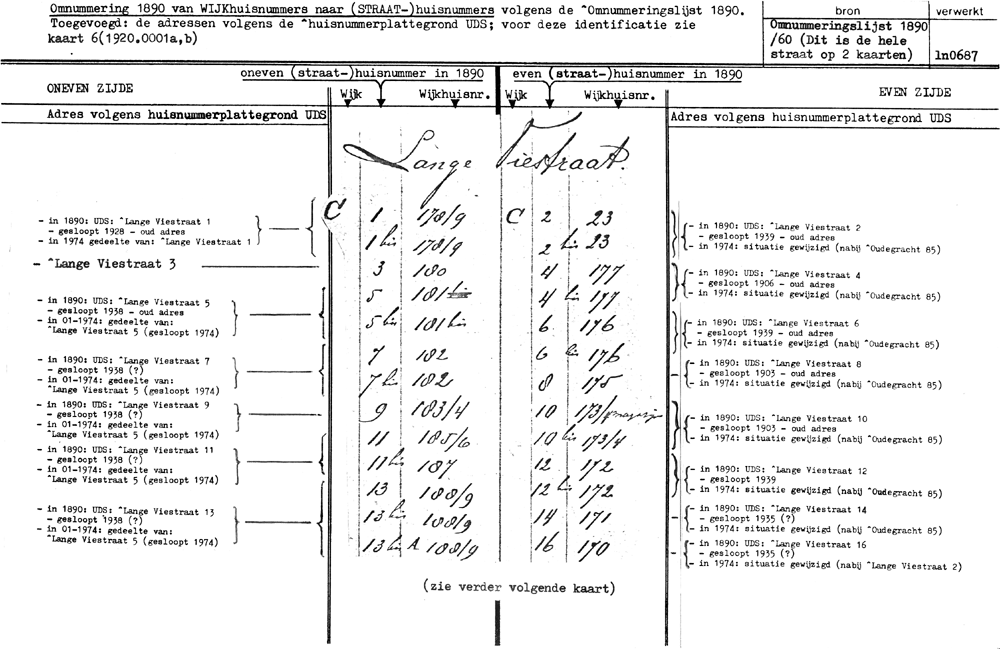 Omnummering 1890 van WIJKhuisnummers naar (STRAAT-)huisnummers volgens de ^Omnummeringslijst 1890.
Toegevoegd: de adressen volgens de ^huisnummerplattegrond UDS; voor deze identificatie zie
kaart 6(1920.0001a,b)
bron
Omnummeringslijst 1890
/60 (Dit is de hele
straat op 2 kaarten)
verwerkt
ln0687
oneven (straat-)huisnummer in 1890
even (straat-)huisnummer in 1890
ONEVEN ZIJDE
Wijk
Wijkhuisnr.
Wijk
Wijkhuisnr.
EVEN ZIJDE
Adres volgens huisnummerplattegrond UDS
Adres volgens huisnummerplattegrond UDS
Lange Viestraat.
- in 1890: UDS: ^Lange Viestraat 1
- gesloopt 1928 - oud adres
- in 1974 gedeelte van: ^Lange Viestraat 1
- ^Lange Viestraat 3
- in 1890: UDS: ^Lange Viestraat 5
- gesloopt 1938 - oud adres
- in 01-1974: gedeelte van:
^Lange Viestraat 5 (gesloopt 1974)
- in 1890: UDS: ^Lange Viestraat 7
- gesloopt 1938 (?)
- in 01-1974: gedeelte van:
^Lange Viestraat 5 (gesloopt 1974)
- in 1890: UDS: ^Lange Viestraat 9
- gesloopt 1938 (?)
- in 01-1974: gedeelte van:
^Lange Viestraat 5 (gesloopt 1974)
- in 1890: UDS: ^Lange Viestraat 11
- gesloopt 1938 (?)
- in 01-1974: gedeelte van:
^Lange Viestraat 5 (gesloopt 1974)
- in 1890: UDS: ^Lange Viestraat 13
- gesloopt 1938 (?)
- in 01-1974: gedeelte van:
^Lange Viestraat 5 (gesloopt 1974)
C 1 178/9
1 bis 178/9
3 180
5 181 bis
5 bis 181 bis
7 182
7 bis 182
9 183/4
11 185/6
11 bis 187
13 188/9
13 bis 188/9
13 bis A 188/9
C 2 23
2 bis 23
4 177
4 bis 177
6 176
6 bis 176
8 175
10 173/
10 bis 173/4
12 172
12 bis 172
14 171
16 170
- in 1890: UDS: ^Lange Viestraat 2
- gesloopt 1939 - oud adres
- in 1974: situatie gewijzigd (nabij ^Oudegracht 85)
- in 1890: UDS: ^Lange Viestraat 4
- gesloopt 1906 - oud adres
- in 1974: situatie gewijzigd (nabij ^Oudegracht 85)
- in 1890: UDS: ^Lange Viestraat 6
- gesloopt 1939 - oud adres
- in 1974: situatie gewijzigd (nabij ^Oudegracht 85)
- in 1890: UDS: ^Lange Viestraat 8
- gesloopt 1903 - oud adres
- in 1974: situatie gewijzigd (nabij ^Oudegracht 85)
- in 1890: UDS: ^Lange Viestraat 10
- gesloopt 1903 - oud adres
- in 1974: situatie gewijzigd (nabij ^Oudegracht 85)
- in 1890: UDS: ^Lange Viestraat 12
- gesloopt 1939
- in 1974: situatie gewijzigd (nabij ^Oudegracht 85)
- in 1890: UDS: ^Lange Viestraat 14
- gesloopt 1935 (?)
- in 1974: situatie gewijzigd (nabij ^Oudegracht 85)
- in 1890: UDS: ^Lange Viestraat 16
- gesloopt 1935 (?)
- in 1974: situatie gewijzigd (nabij ^Lange Viestraat 2)
(zie verder volgende kaart)